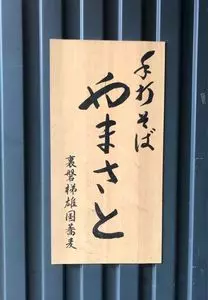 手打そば
やまさと
裏磐梯雄国蕎麦